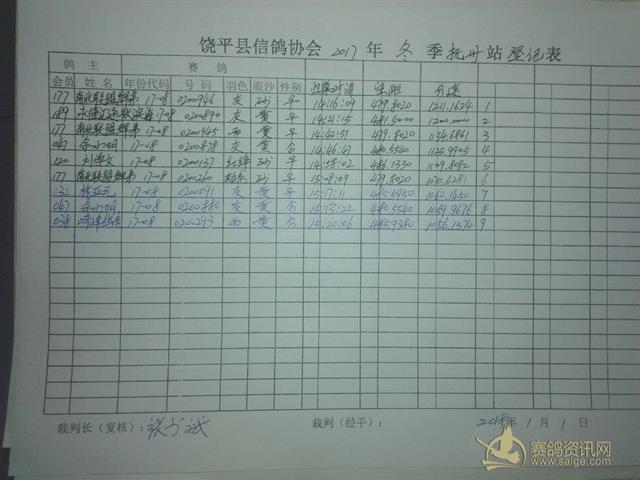 饶平县信鸽协会 2017 年 冬 季 抚州 站 登记表
鸽 主 赛 鸽
会员 姓名 年份代码 号码 羽色 眼沙 性别 归巢时间 空距 分速
177 南北联盟 17-08 0200946 灰 砂 14:16:09 479.8020 1241.1624 1
189 17-08 0200890 灰 黄 14:21:15 481.5000 1200.0000 2
177 南北联盟 17-08 0200945 雨 黄 14:42:51 479.8020 1134.6861 3
047 余小明 17-08 0200878 灰 黄 14:46:47 480.5540 1125.9905 4
120 刘学文 17-08 0200137 红绛 砂 14:58:02 486.1330 1109.8082 5
177 南北联盟 17-08 0200260 黄 15:08:09 479.8020 1070.6281 6
17-08 0200591 灰 黄 15:17:11 485.5950 1062.1650 7
047 余小明 17-08 0200880 灰 黄 15:13:22 480.5540 1059.9676 8
038 17-08 0200293 雨 黄 15:20:06 485.9380 1056.1574 9
裁判长（复核）：张少斌 裁判（经手）： 2018年 1 月 1 日
赛鸽资讯网
www.saige.com